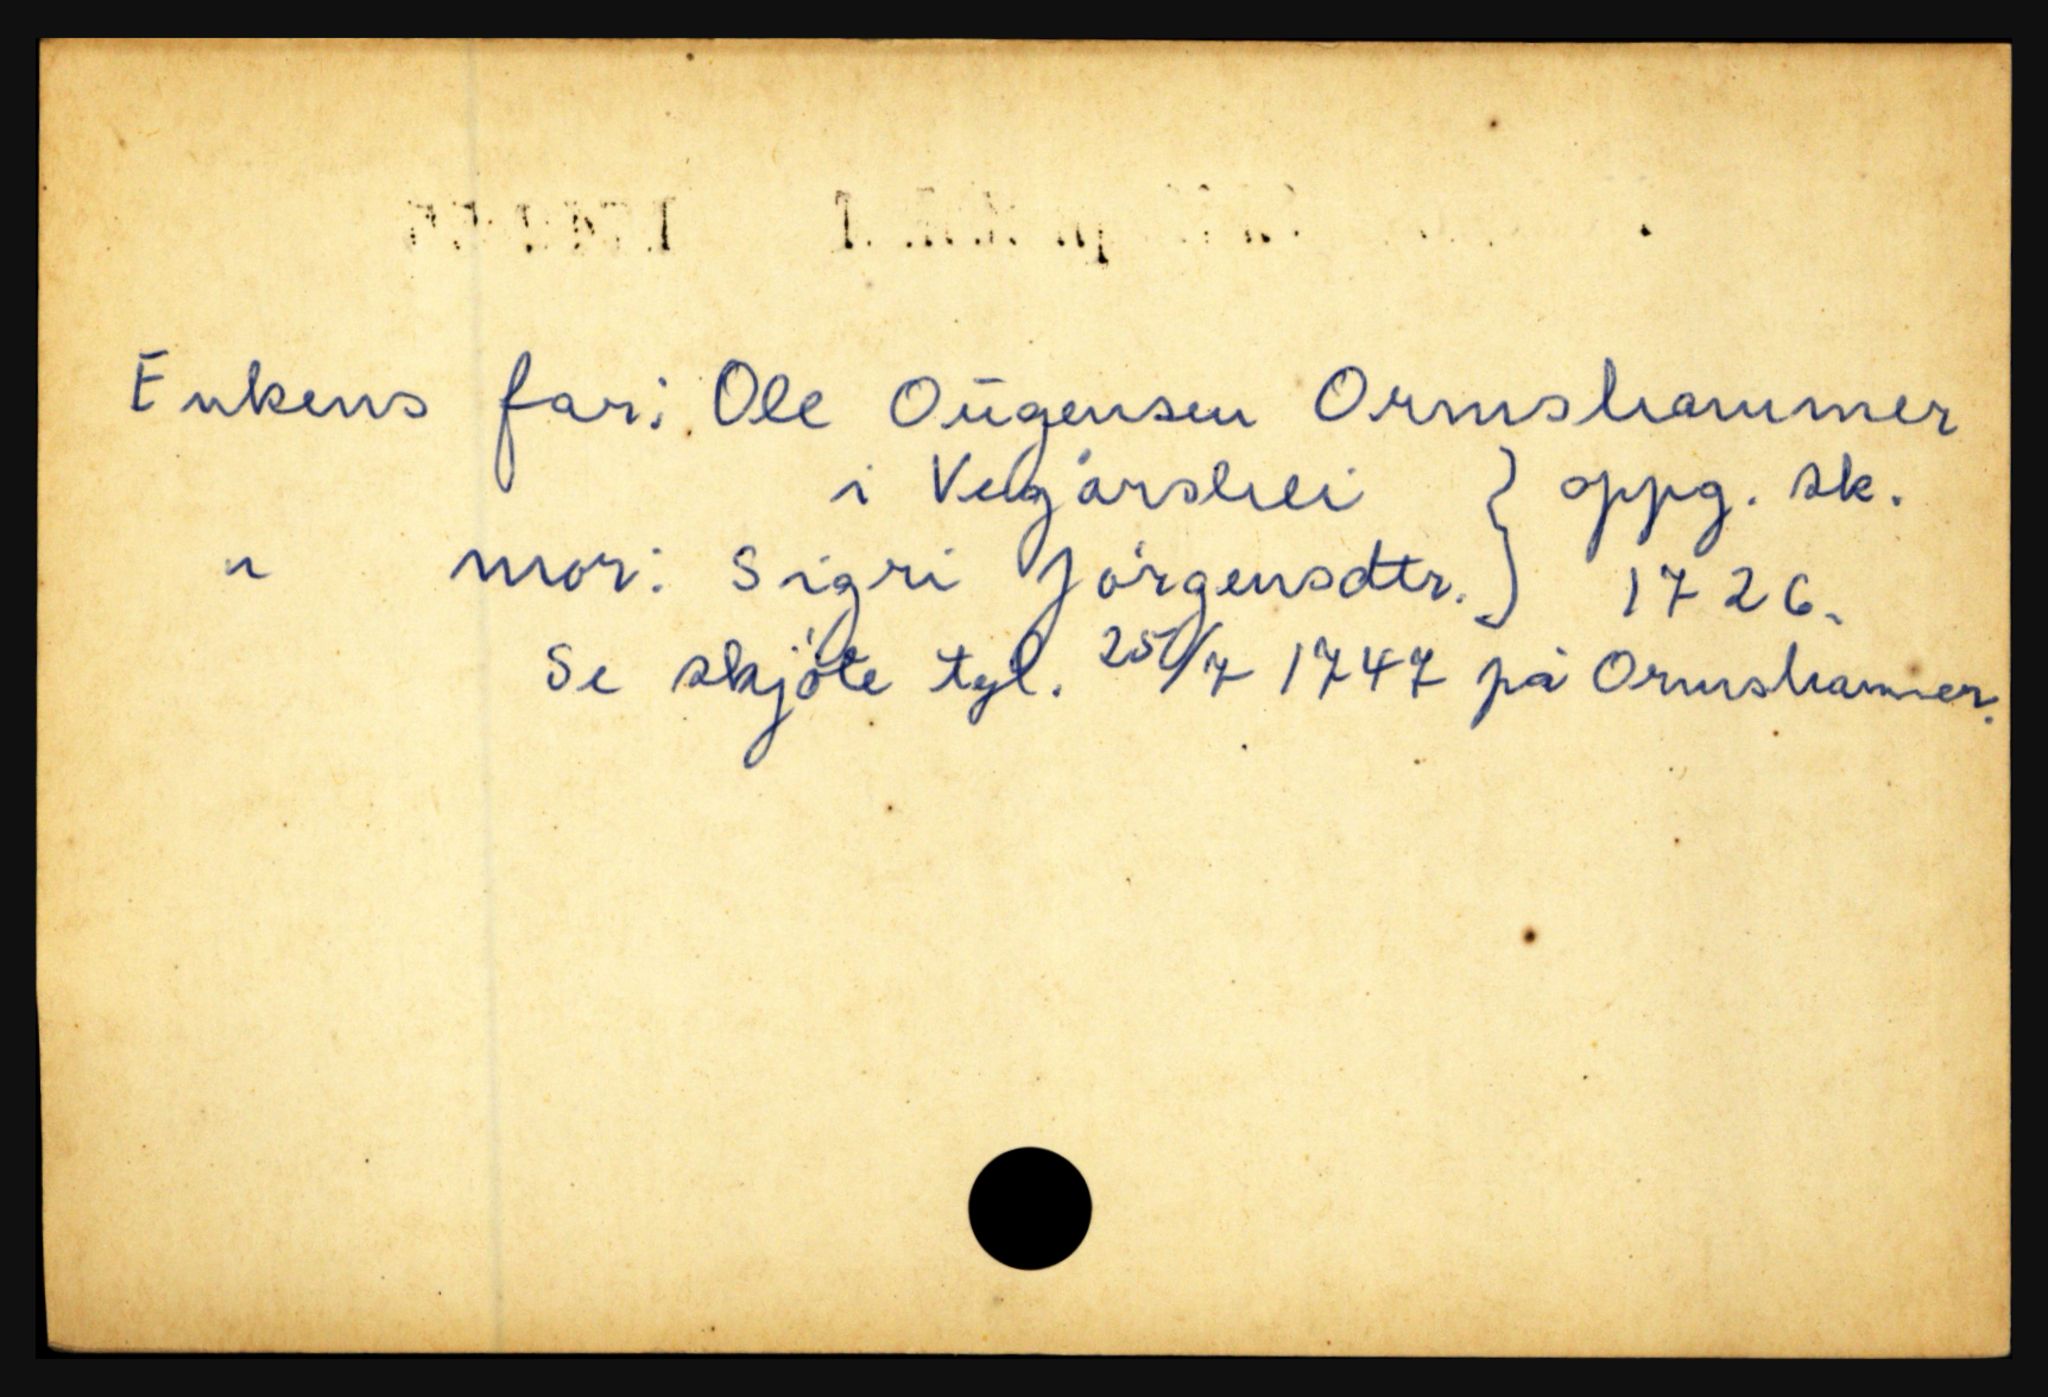 Enkens far: Ole Oügensen Ormshammer
i Vegårshei } oppg. sk.
" mor: Sigri Jörgensdtr. } 1726.
Se skjöte tgl. 25/7 1747 på Ormshammer.